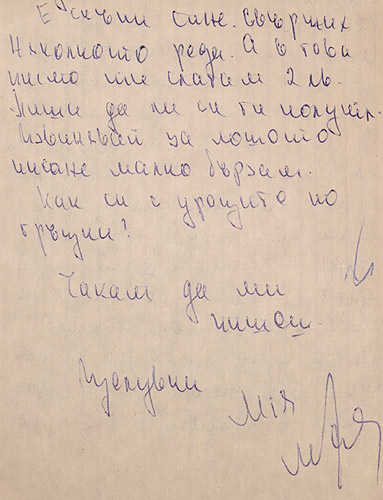 Е скъпи сине. свърших
няколкото реда. А в това
писмо ти слагам 2 лв.
Пиши да ли си ги получил.
Извинявай за лошото
писане малко бързам.
Как си с уроците по
гръцки?
Чакам да ми
пишеш.
Целувки